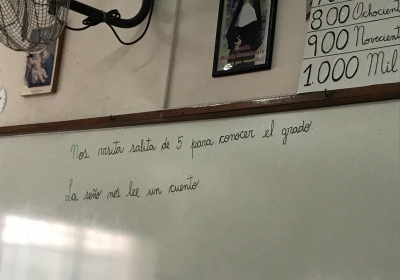 800 Ochocient
900 Novecient
1000 Mil
Nos visita salita de 5 para conocer el grado.
La seño nos lee un cuento